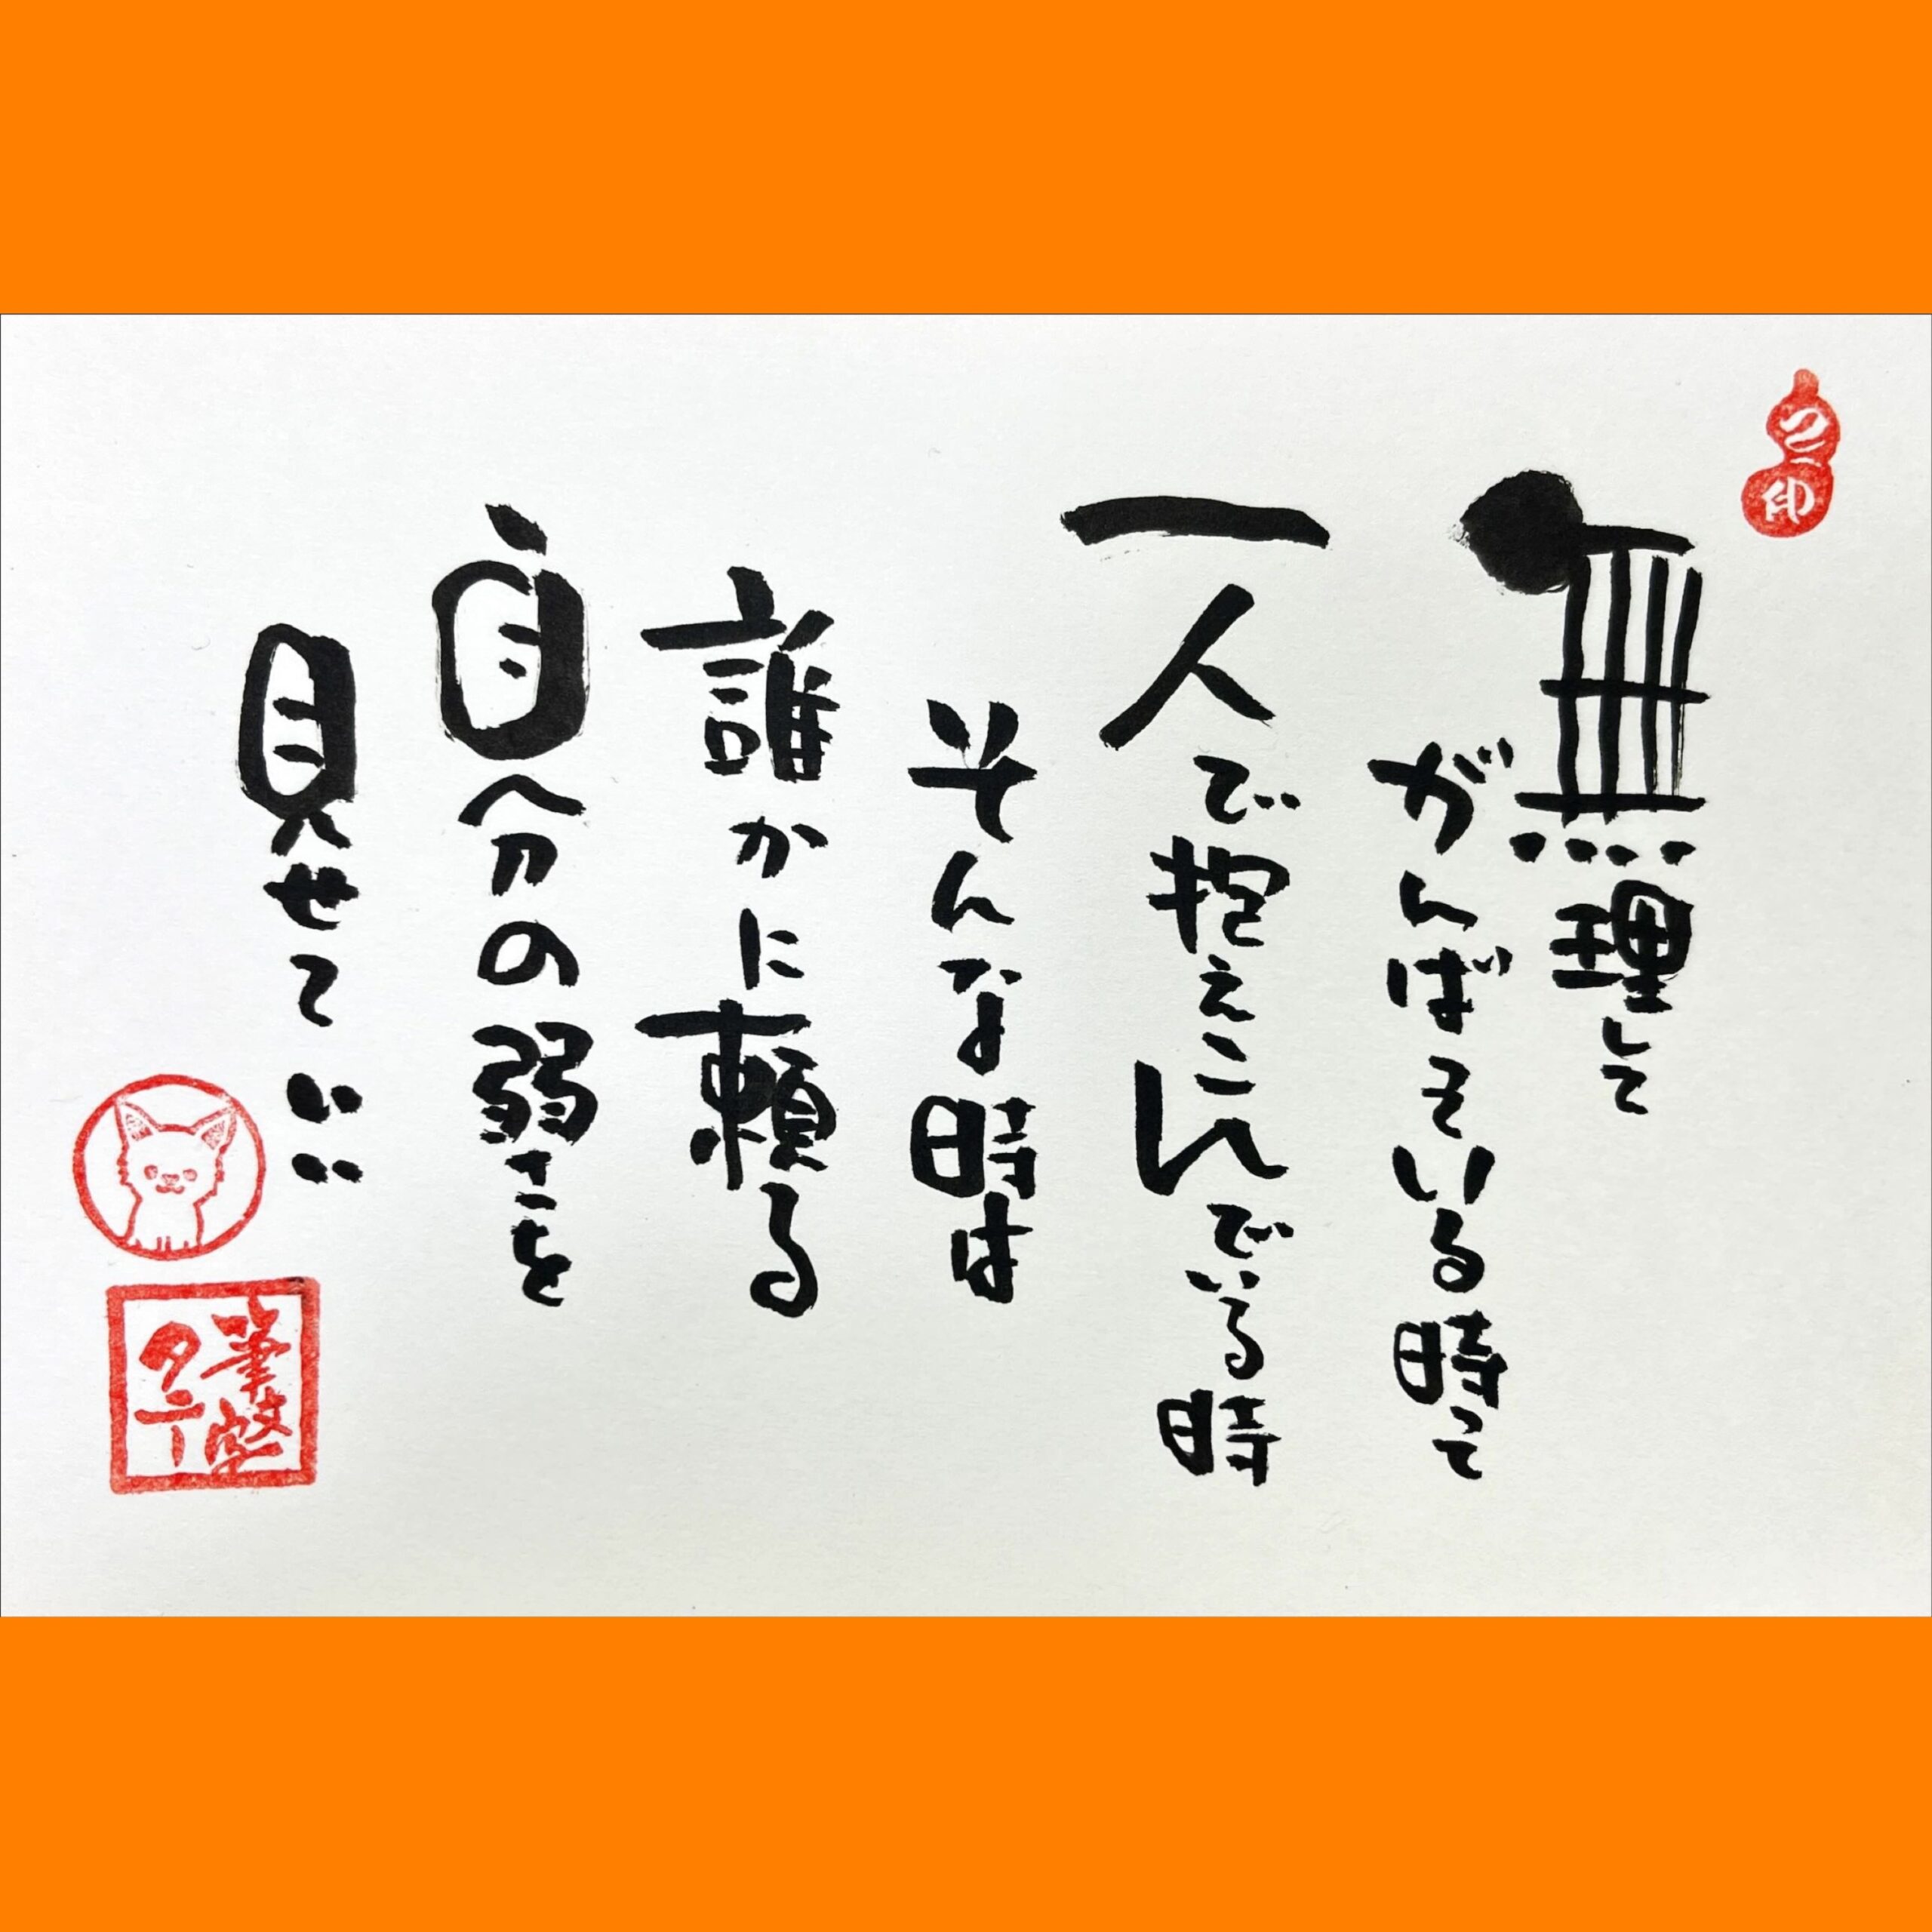 無理して
がんばっている時って
一人で抱えこんでいる時
そんな時は
誰かに頼る
自分の弱さを
見せていい